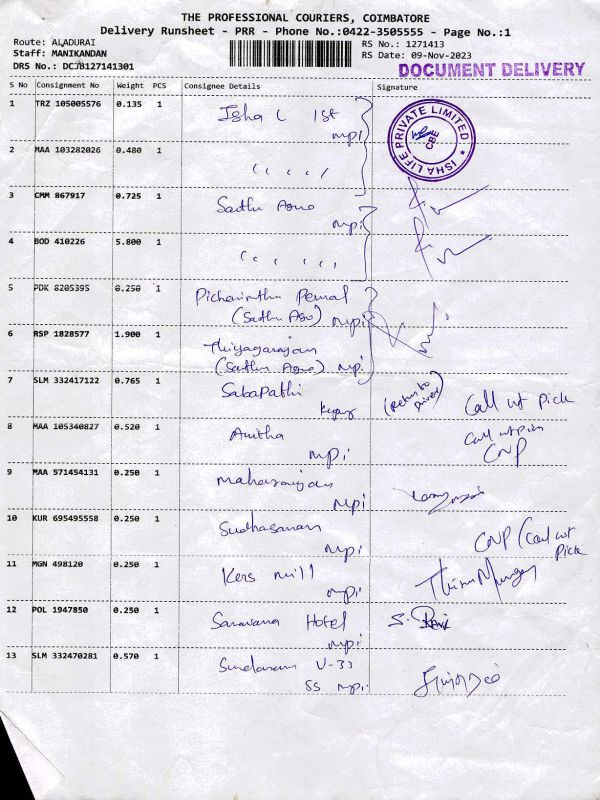 THE PROFESSIONAL COURIERS, COIMBATORE
Delivery Runsheet - PRR - Phone No.:0422-3505555 - Page No.:1
Route: ALADURAI
Staff: MANIKANDAN
DRS No.: DCJ8127141301
RS No.: 1271413
RS Date: 09-Nov-2023
DOCUMENT DELIVERY
S No Consignment No Weight PCS Consignee Details Signature
1 TRZ 105005576 0.135 1 Isha L 1st
mpi
ISHA LIFE PRIVATE LIMITED
CBE
2 MAA 103282026 0.480 1 " " "
3 CMM 867917 0.725 1 Sathu Agro
mpi
4 BOD 410226 5.800 1 " " "
5 PDK 8205395 0.250 1
(Sathu Agro) mpi
6 RSP 1828577 1.900 1 Thiyagarajan
(Sathu Agro) mpi
7 SLM 332417122 0.765 1 Sabapathi
(Return to Driver) Call not Pick
8 MAA 105340827 0.520 1 Anitha
mpi
Call not pick
CNP
9 MAA 571454131 0.250 1 Maharajan
mpi
10 KUR 695495558 0.250 1 Sudhasanan
mpi
CNP (Call not
Pick
11 MGN 498120 0.250 1 Kers mill
mpi
12 POL 1947850 0.250 1 Saravana Hotel
mpi
13 SLM 332470281 0.570 1 Sundaram U-33
SS mpi